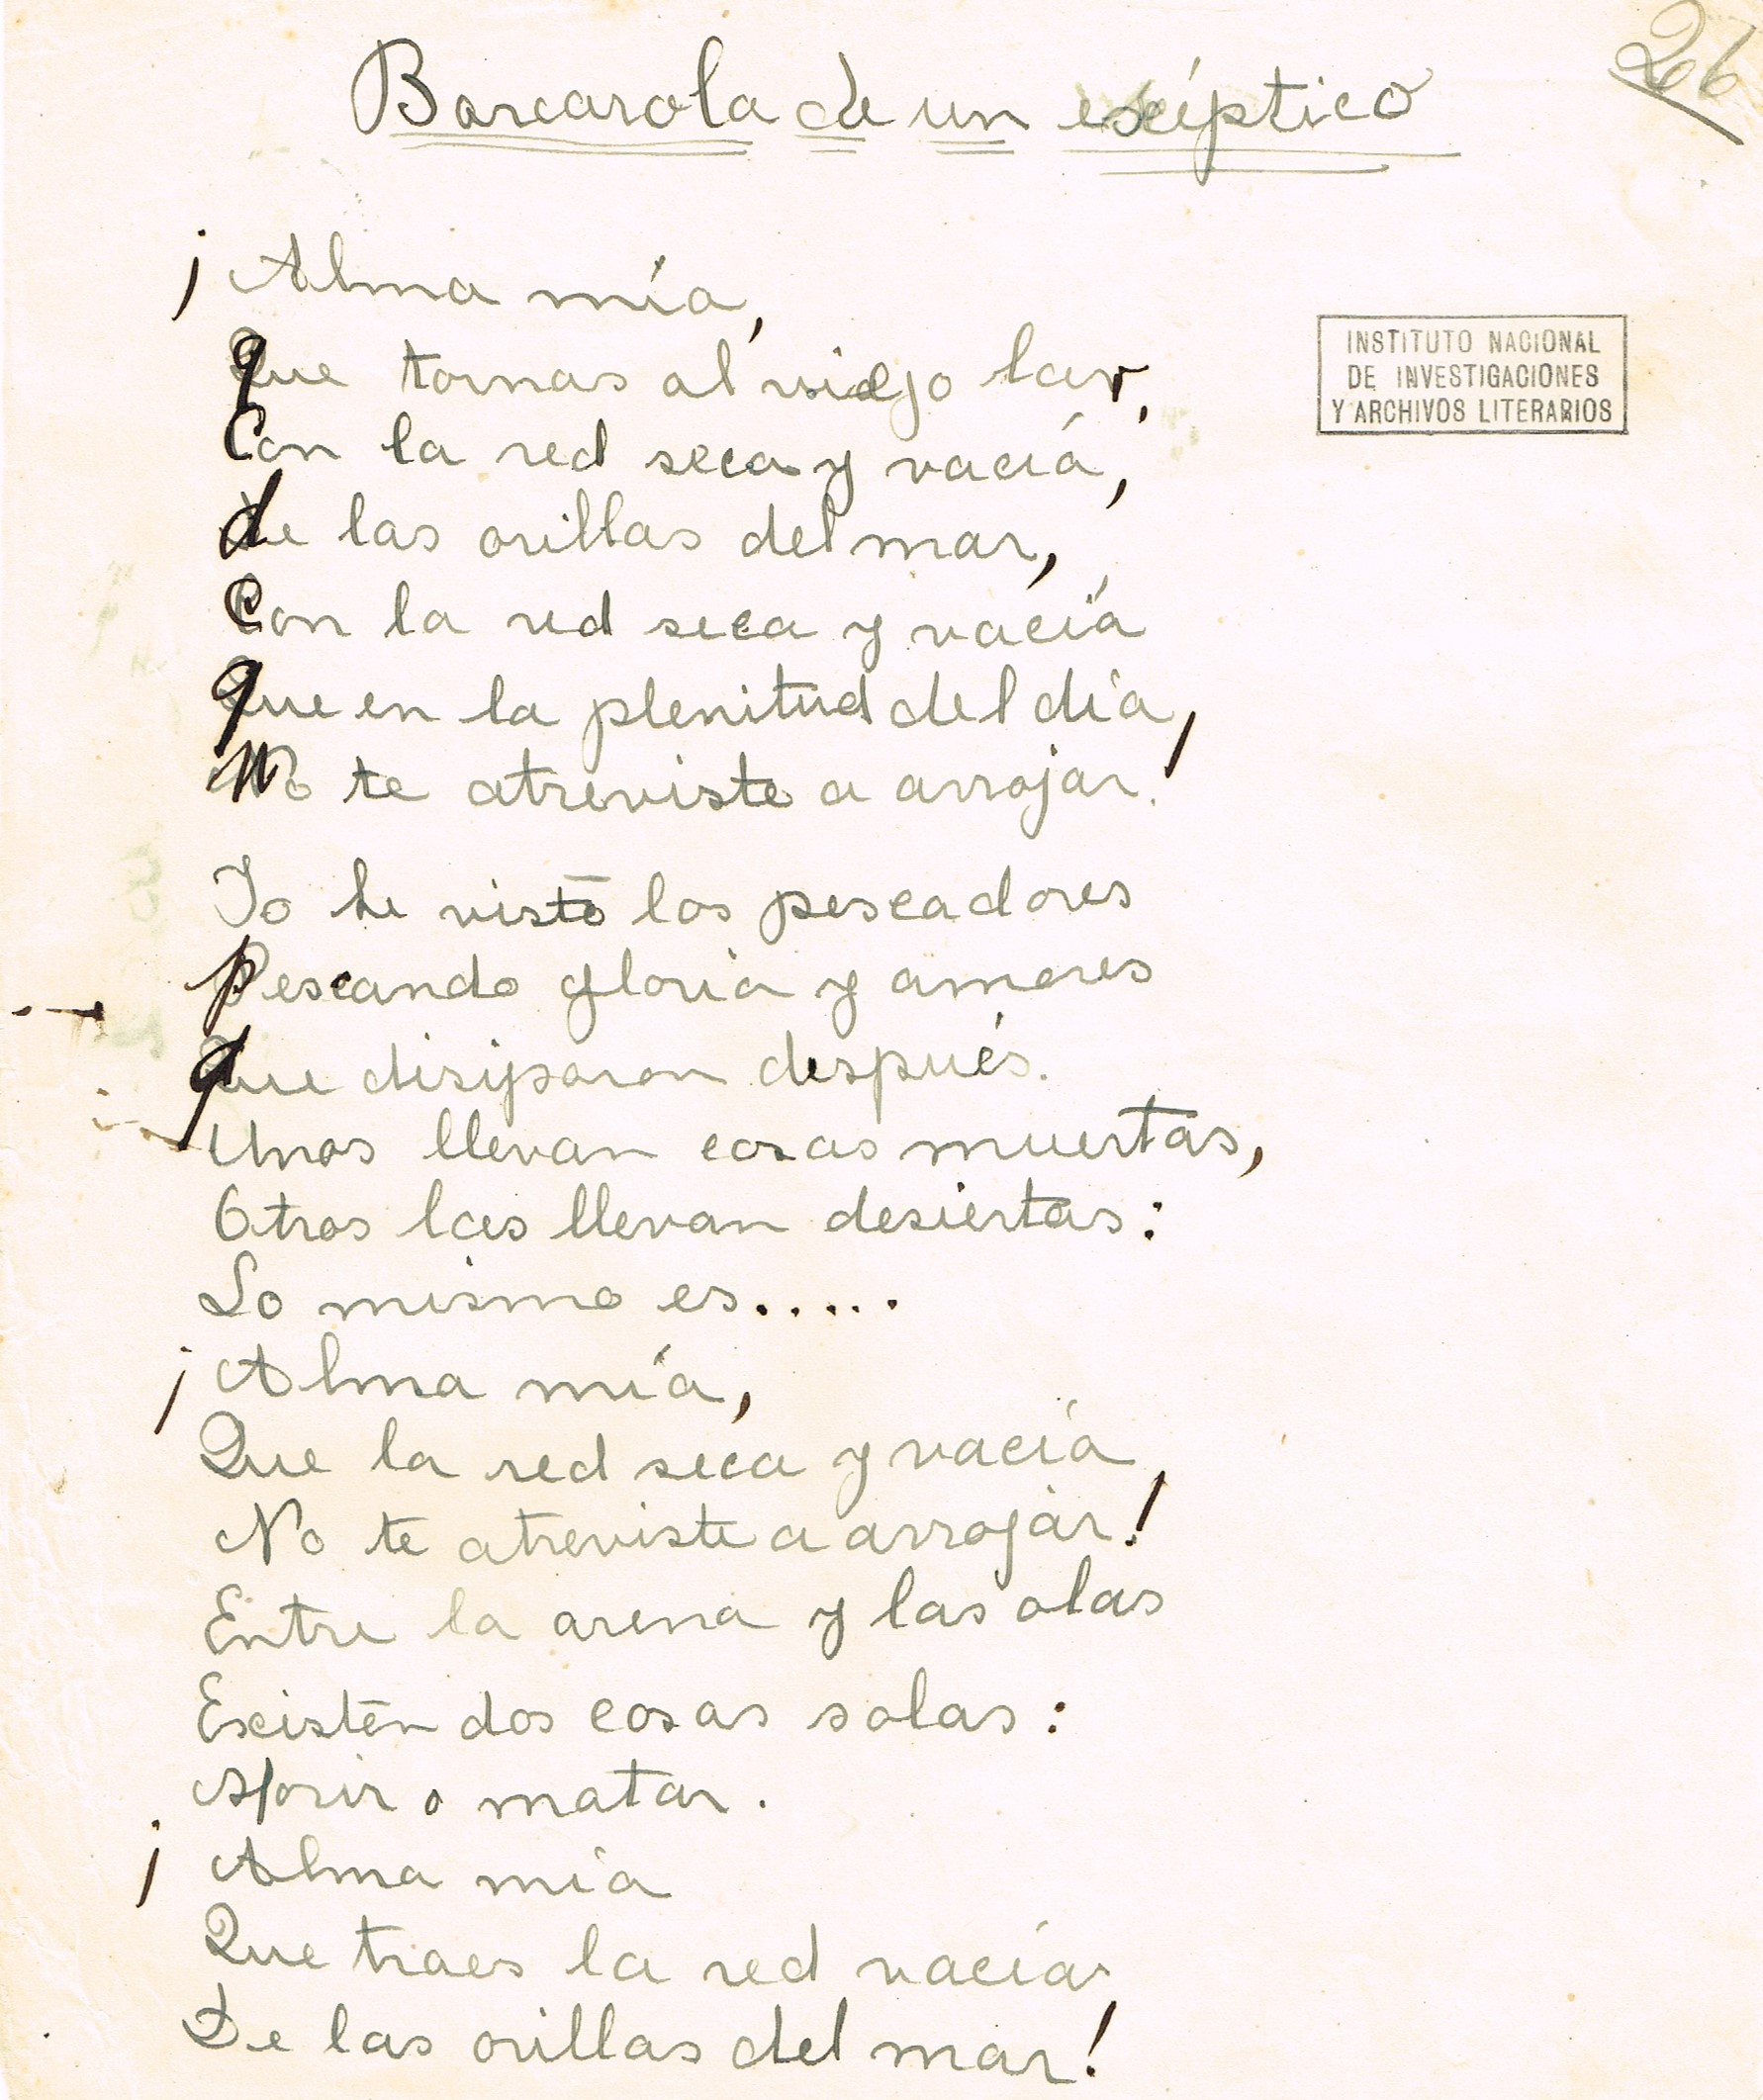 26
Barcarola de un escéptico
INSTITUTO NACIONAL
DE INVESTIGACIONES
Y ARCHIVOS LITERARIOS
¡Alma mía,
que tornas al viejo lar,
Con la red seca y vacía,
de las orillas del mar,
Con la red seca y vacía
que en la plenitud del día,
no te atreviste a arrojar!
Yo he visto los pescadores
pescando gloria y amores
que disiparon después.
Unos llevan cosas muertas,
Otros las llevan desiertas:
Lo mismo es.....
¡Alma mía,
Que la red seca y vacía
No te atreviste a arrojar!
Entre la arena y las olas
Existen dos cosas solas:
Morir o matar.
¡Alma mía
Que traes la red vacía
De las orillas del mar!